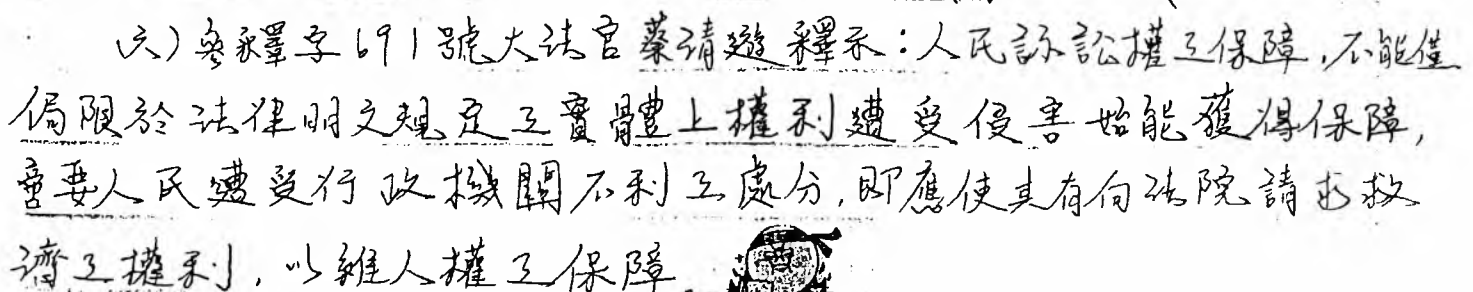 六)參釋字691號大法官蔡清遊釋示:人民訴訟權之保障,不能僅
侷限於法律明文規定之實體上權利遭受侵害始能獲得保障,
要人民遭受行政機關不利之處分,即應使其有向法院請求救
濟之權利,以維人權之保障.